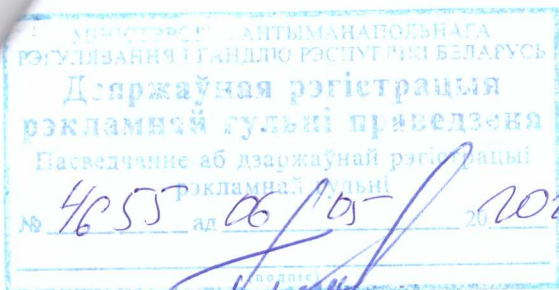 МІНІСТЭРСТВА АНТЫМАНАПОЛЬНАГА
РЭГУЛЯВАННЯ І ГАНДЛЮ РЭСПУБЛІКІ БЕЛАРУСЬ
Дзяржаўная рэгістрацыя
рэкламнай гульні праведзена
Пасведчанне аб дзяржаўнай рэгістрацыі
рэкламнай гульні
№ 4655 ад 06 05 20
(подпіс)